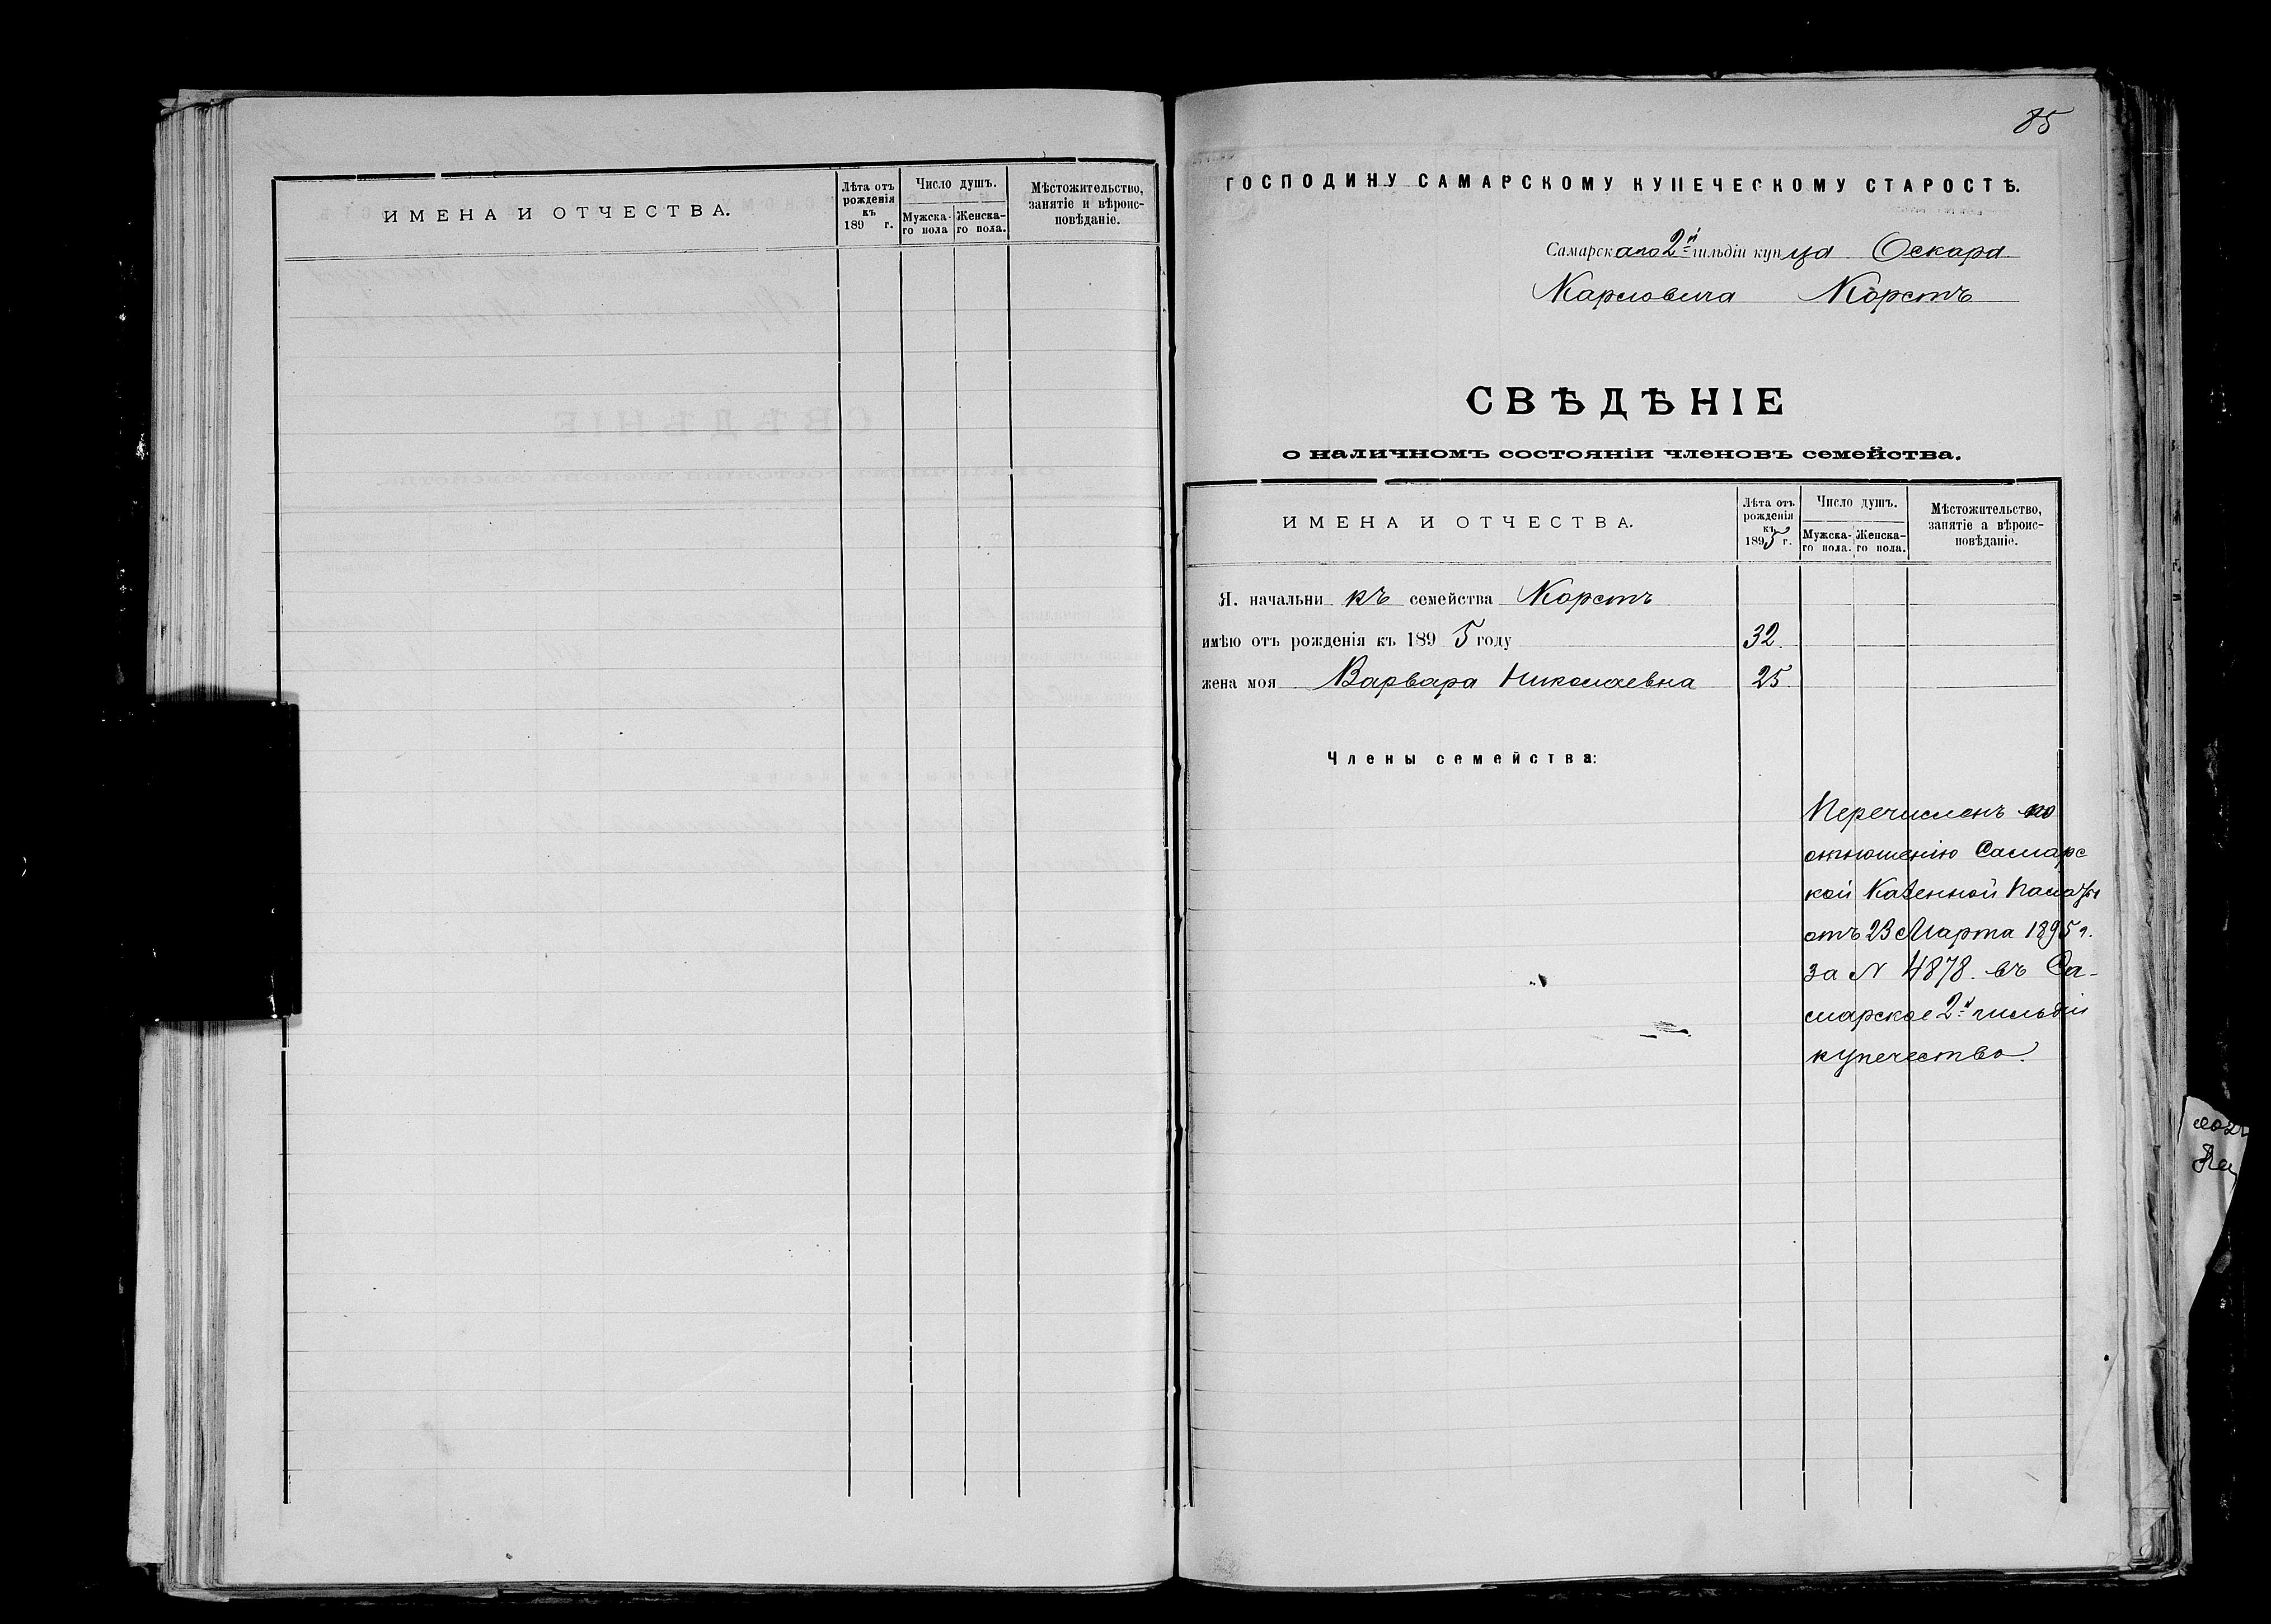 ИМЕНА И ОТЧЕСТВА.
Лѣта отъ
рожденія
къ
189 г.
Число душъ.
Мужска-
го пола
Женска-
го пола.
Мѣстожительство,
занятіе и вѣроис-
повѣданіе.
85
ГОСПОДИНУ САМАРСКОМУ КУПЕЧЕСКОМУ СТАРОСТѢ.
Самарскаго 2й гильдіи купца Оскара
Карловича Корстъ
СВѢДѢНІЕ
о наличномъ состояніи членовъ семейства.
ИМЕНА И ОТЧЕСТВА.
Лѣта отъ
рожденія
къ
1895 г.
Число душъ.
Мужска-
го пола.
Женска-
го пола.
Мѣстожительство,
занятіе а вѣроис-
повѣданіе.
Я. начальни къ семейства Корстъ
имѣю отъ рожденія къ 1895 году 32.
жена моя Варвара Николаевна 25.
Члены семейства:
Перечисленъ по
отношенію Самарс
кой Казенной Палаты
отъ 23 Марта 1895 г.
за N 4878. въ Са-
марское 2й гильдіи
купечество.